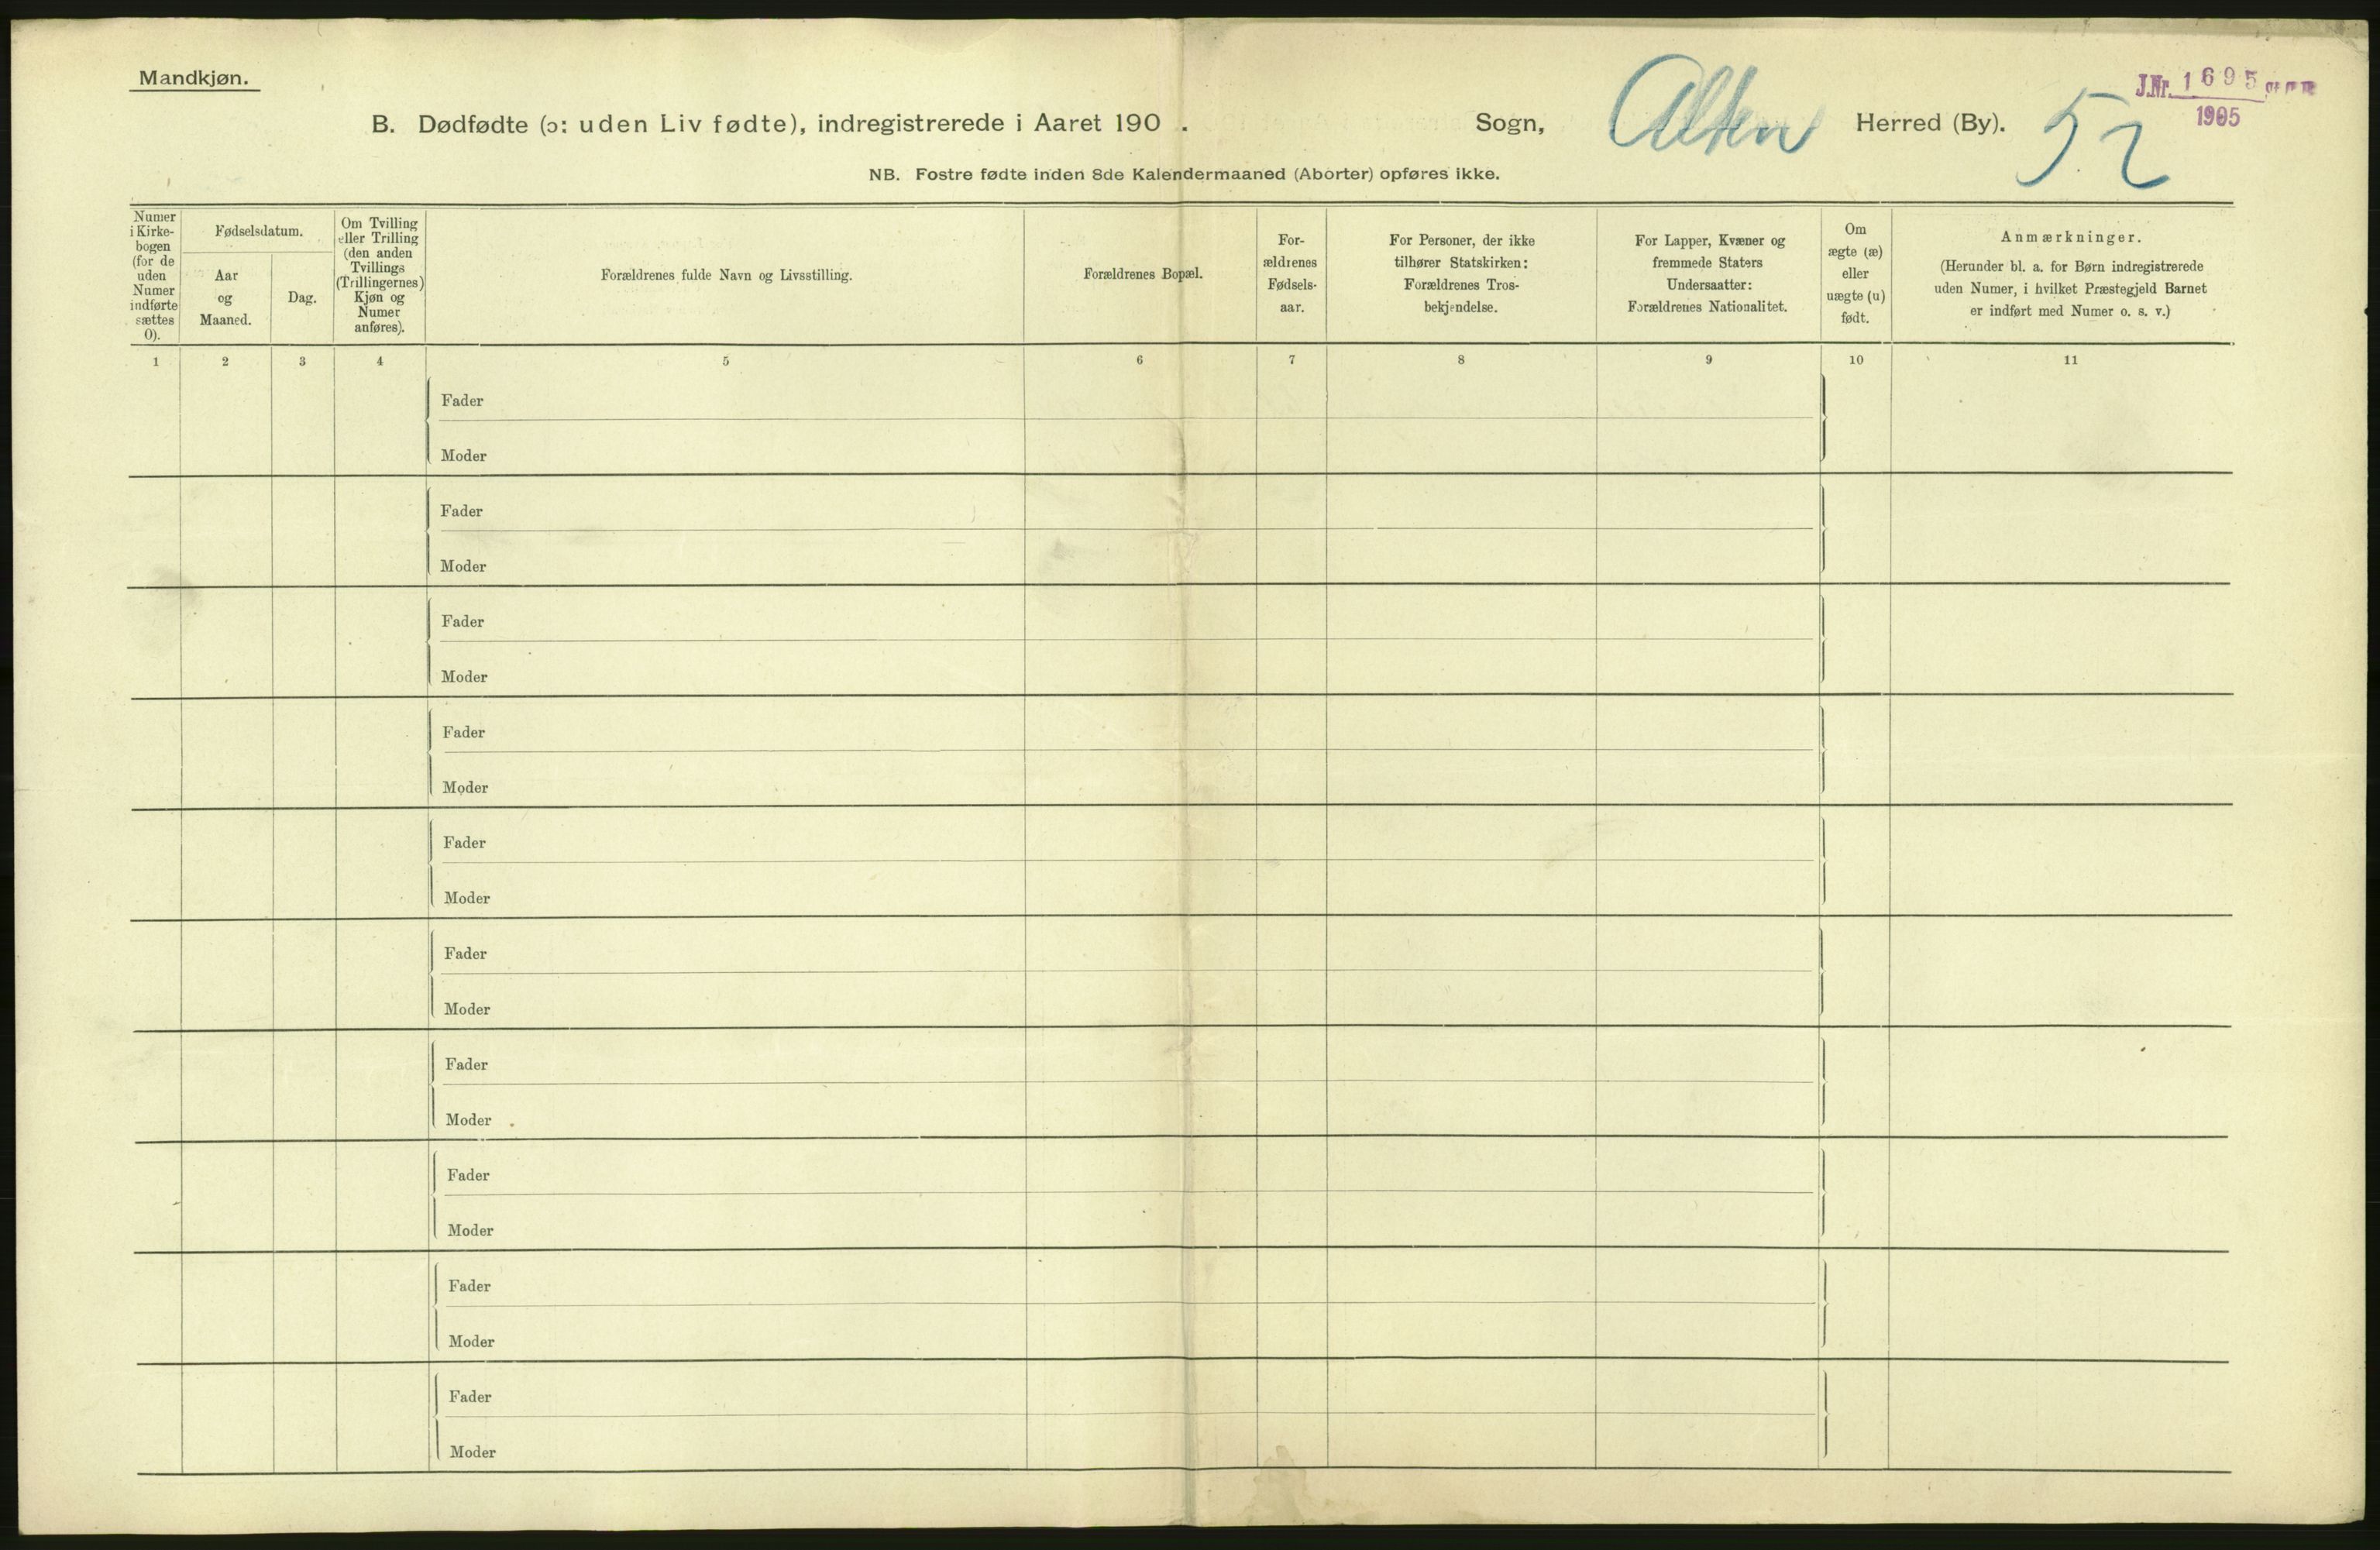 Mandkjøn.
J.Nr. 1695
1905
B. Dødfødte (ɔ: uden Liv fødte), indregistrerede i Aaret 190 . Sogn, Alten Herred (By). 52
NB. Fostre fødte inden 8de Kalendermaaned (Aborter) opføres ikke.
Numer
i Kirke-
bogen
(for de
uden
Numer
indførte
sættes
0).
Fødselsdatum.
Aar
og
Maaned.
Dag.
Om Tvilling
eller Trilling
(den anden
Tvillings
(Trillingernes)
Kjøn og
Numer
anføres).
Forældrenes fulde Navn og Livsstilling.
Forældrenes Bopæl.
For-
ældrenes
Fødsels-
aar.
For Personer, der ikke
tilhører Statskirken:
Forældrenes Tros-
bekjendelse.
For Lapper, Kvæner og
fremmede Staters
Undersaatter:
Forældrenes Nationalitet.
Om
ægte (æ)
eller
uægte (u)
født.
Anmærkninger.
(Herunder bl. a. for Børn indregistrerede
uden Numer, i hvilket Præstegjeld Barnet
er indført med Numer o. s. v.)
1 2 3 4 5 6 7 8 9 10 11
Fader
Moder
Fader
Moder
Fader
Moder
Fader
Moder
Fader
Moder
Fader
Moder
Fader
Moder
Fader
Moder
Fader
Moder
Fader
Moder